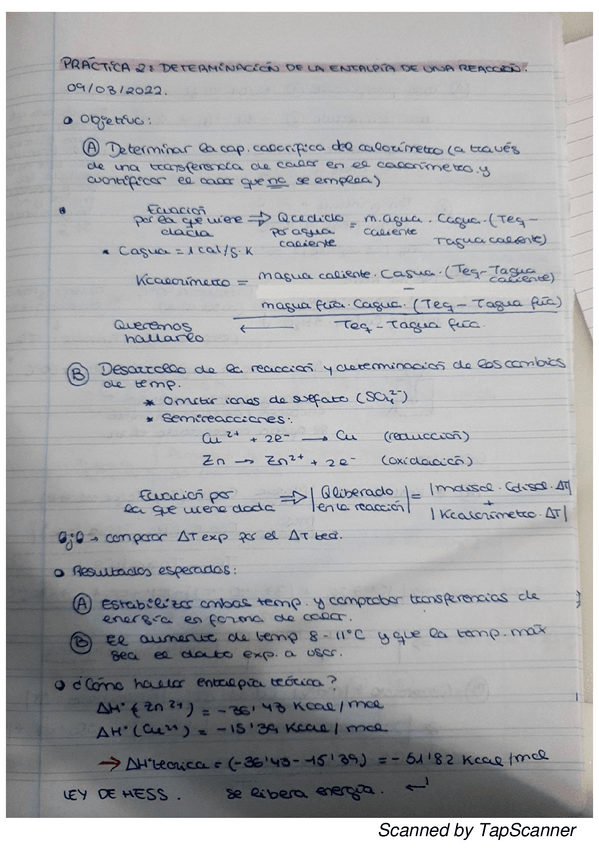 PRÁCTICA 2: DETERMINACIÓN DE LA ENTALPÍA DE UNA REACCIÓN.
09/03/2022.
Objetivo:
(A) Determinar la cap. calorífica del calorímetro (a través
de una transferencia de calor en el calorímetro y
cuantificar el calor que no se emplea)
Ecuación por la que viene dada ⇒ Qcedido por agua caliente = m.agua caliente · Cagua · (Teq - Tagua caliente)
* Cagua = 1 cal/g·K
Kcalorímetro = magua caliente · Cagua · (Teq - Tagua caliente) -
magua fría · Cagua · (Teq - Tagua fría)
Queremos hallarlo ← Teq - Tagua fría.
(B) Desarrollo de la reacción y determinación de los cambios
de temp.
* Omitir iones de sulfato (SO₄²⁻)
* Semirreacciones:
Cu²⁺ + 2e⁻ → Cu (reducción)
Zn → Zn²⁺ + 2e⁻ (oxidación)
Ecuación por la que viene dada ⇒ |Qliberado en la reacción| = |mdisol · Cdisol · ΔT| + |Kcalorímetro · ΔT|
→ comparar ΔT exp por el ΔT teó.
Resultados esperados:
(A) Estabilizar ambas temp. y comprobar transferencias de
energía en forma de calor.
(B) El aumento de temp 8-11°C y que la temp. máx
sea el dato exp. a usar.
¿Cómo hallar entalpía teórica?
ΔH° (Zn²⁺) = -36'43 Kcal/mol
ΔH° (Cu²⁺) = -15'39 Kcal/mol
→ ΔH°teórica = (-36'43-15'39) = -51'82 Kcal/mol
LEY DE HESS. Se libera energía. ↵
Scanned by TapScanner